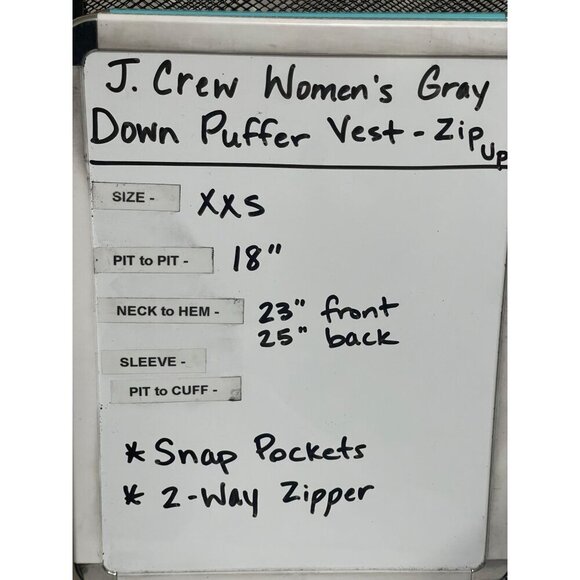 J. Crew Women's Gray
Down Puffer Vest - Zip Up
SIZE - XXS
PIT to PIT - 18"
NECK to HEM - 23" front
25" back
SLEEVE -
PIT to CUFF -
* Snap Pockets
* 2-Way Zipper